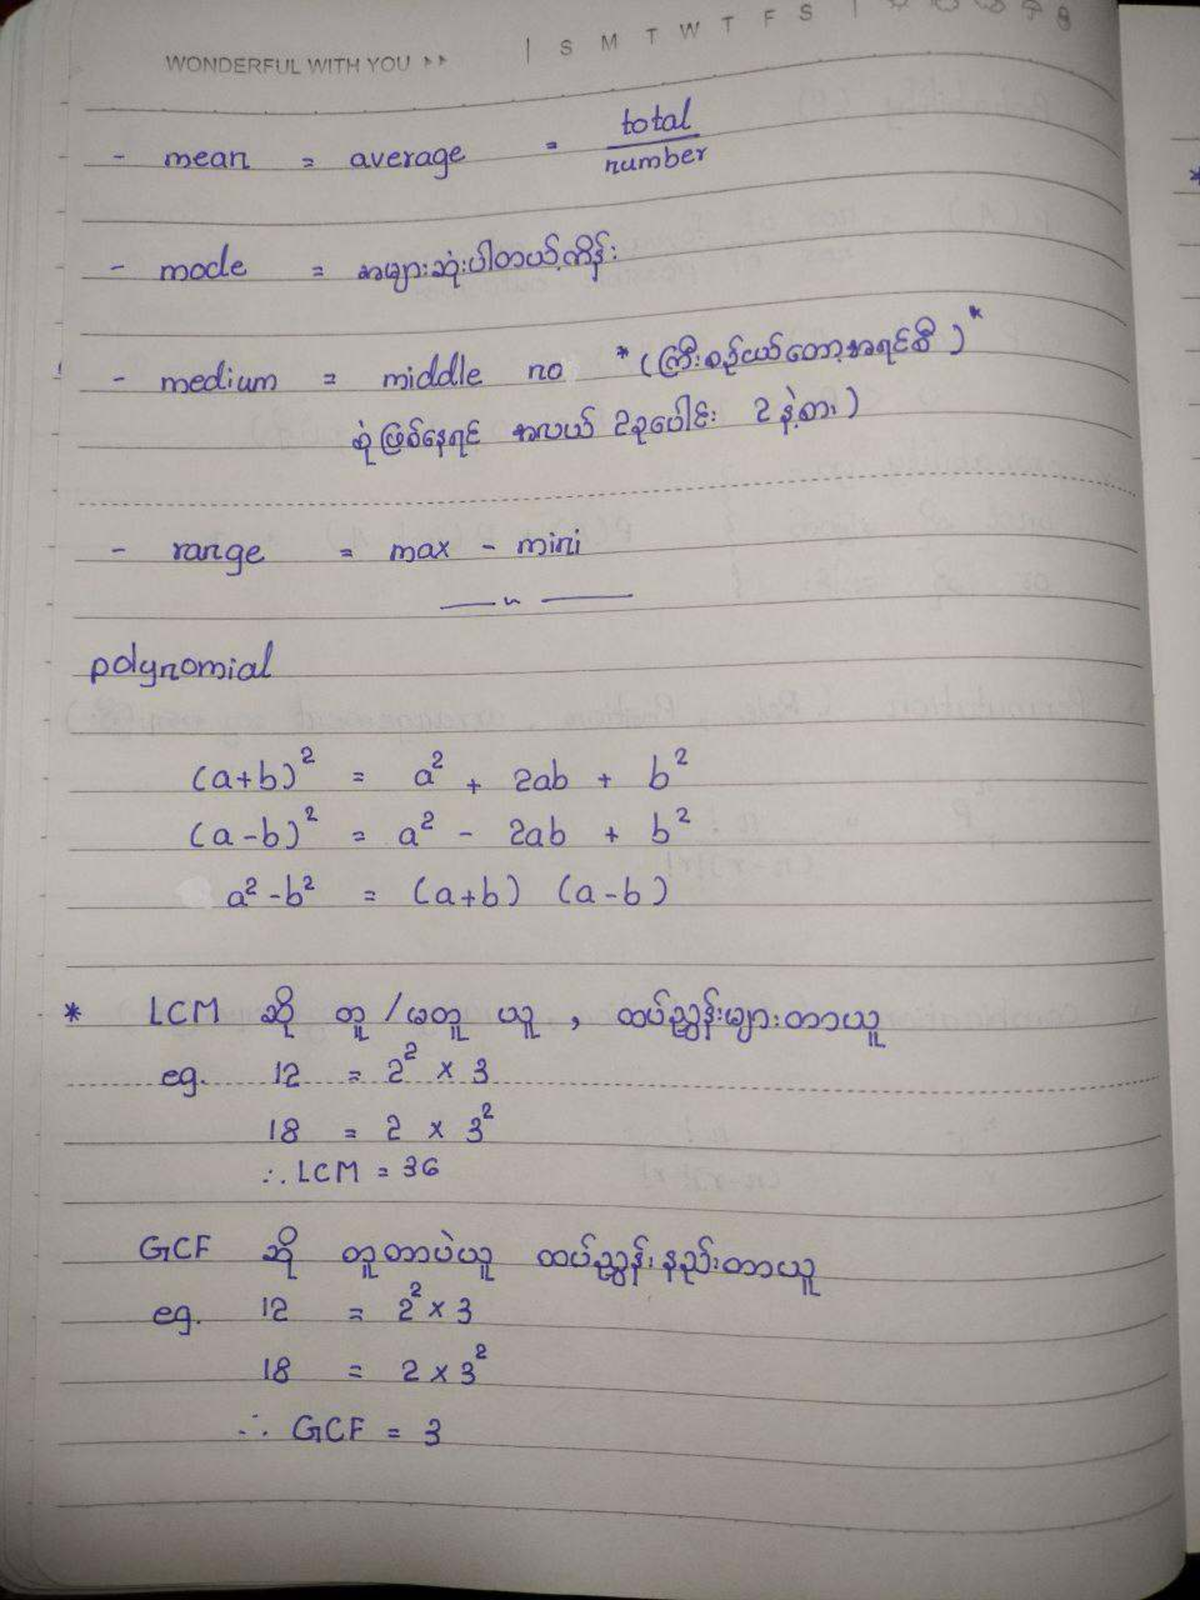 WONDERFUL WITH YOU | S M T W T F S |
- mean = average = total / number
- mode = အများဆုံးပါတယ့်ကိန်း
- medium = middle no *(ကြီးစဉ်ငယ်တော့အရင်စီ)*
စုံဖြစ်နေရင် အလယ် 2ခုပေါင်း 2 နဲ့စား)
- range = max - mini
polynomial
(a+b)² = a² + 2ab + b²
(a-b)² = a² - 2ab + b²
a²-b² = (a+b) (a-b)
* LCM ဆို တူ/မတူ ယူ , ထပ်ညွှန်းများတာယူ
eg. 12 = 2² × 3
18 = 2 × 3²
∴ LCM = 36
GCF ဆို တူတာပဲယူ ထပ်ညွှန်းနည်းတာယူ
eg. 12 = 2² × 3
18 = 2 × 3²
∴ GCF = 3